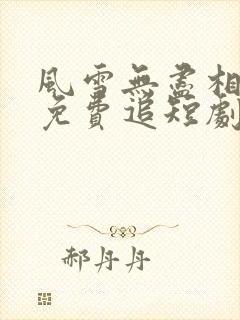 風雪無盡相
免費追短劇
郝丹丹